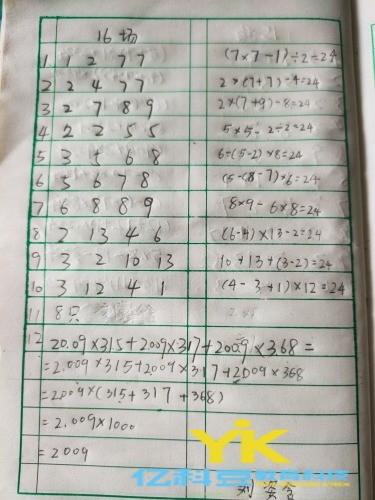 16场
1 1 2 7 7 (7×7-1)÷2=24
2 2 4 7 7 2×(7+7)-4=24
3 2 7 8 9 2×(7+9)-8=24
4 2 2 5 5 5×5-2÷2=24
5 3 5 6 8 6÷(5-2)×8=24
6 5 6 7 8 (5-(8-7)×6=24
7 6 8 8 9 8×9-6×8=24
8 2 13 4 6 (6-4)×13-2=24
9 3 2 10 13 10+13+(3-2)=24
10 3 12 4 1 (4-3+1)×12=24
11 8只
12 20.09×31.5+2.009×317+200.9×3.68=
=2.009×315+2.009×317+2.009×368
=2.009×(315+317+368)
=2.009×1000
=2009
YK